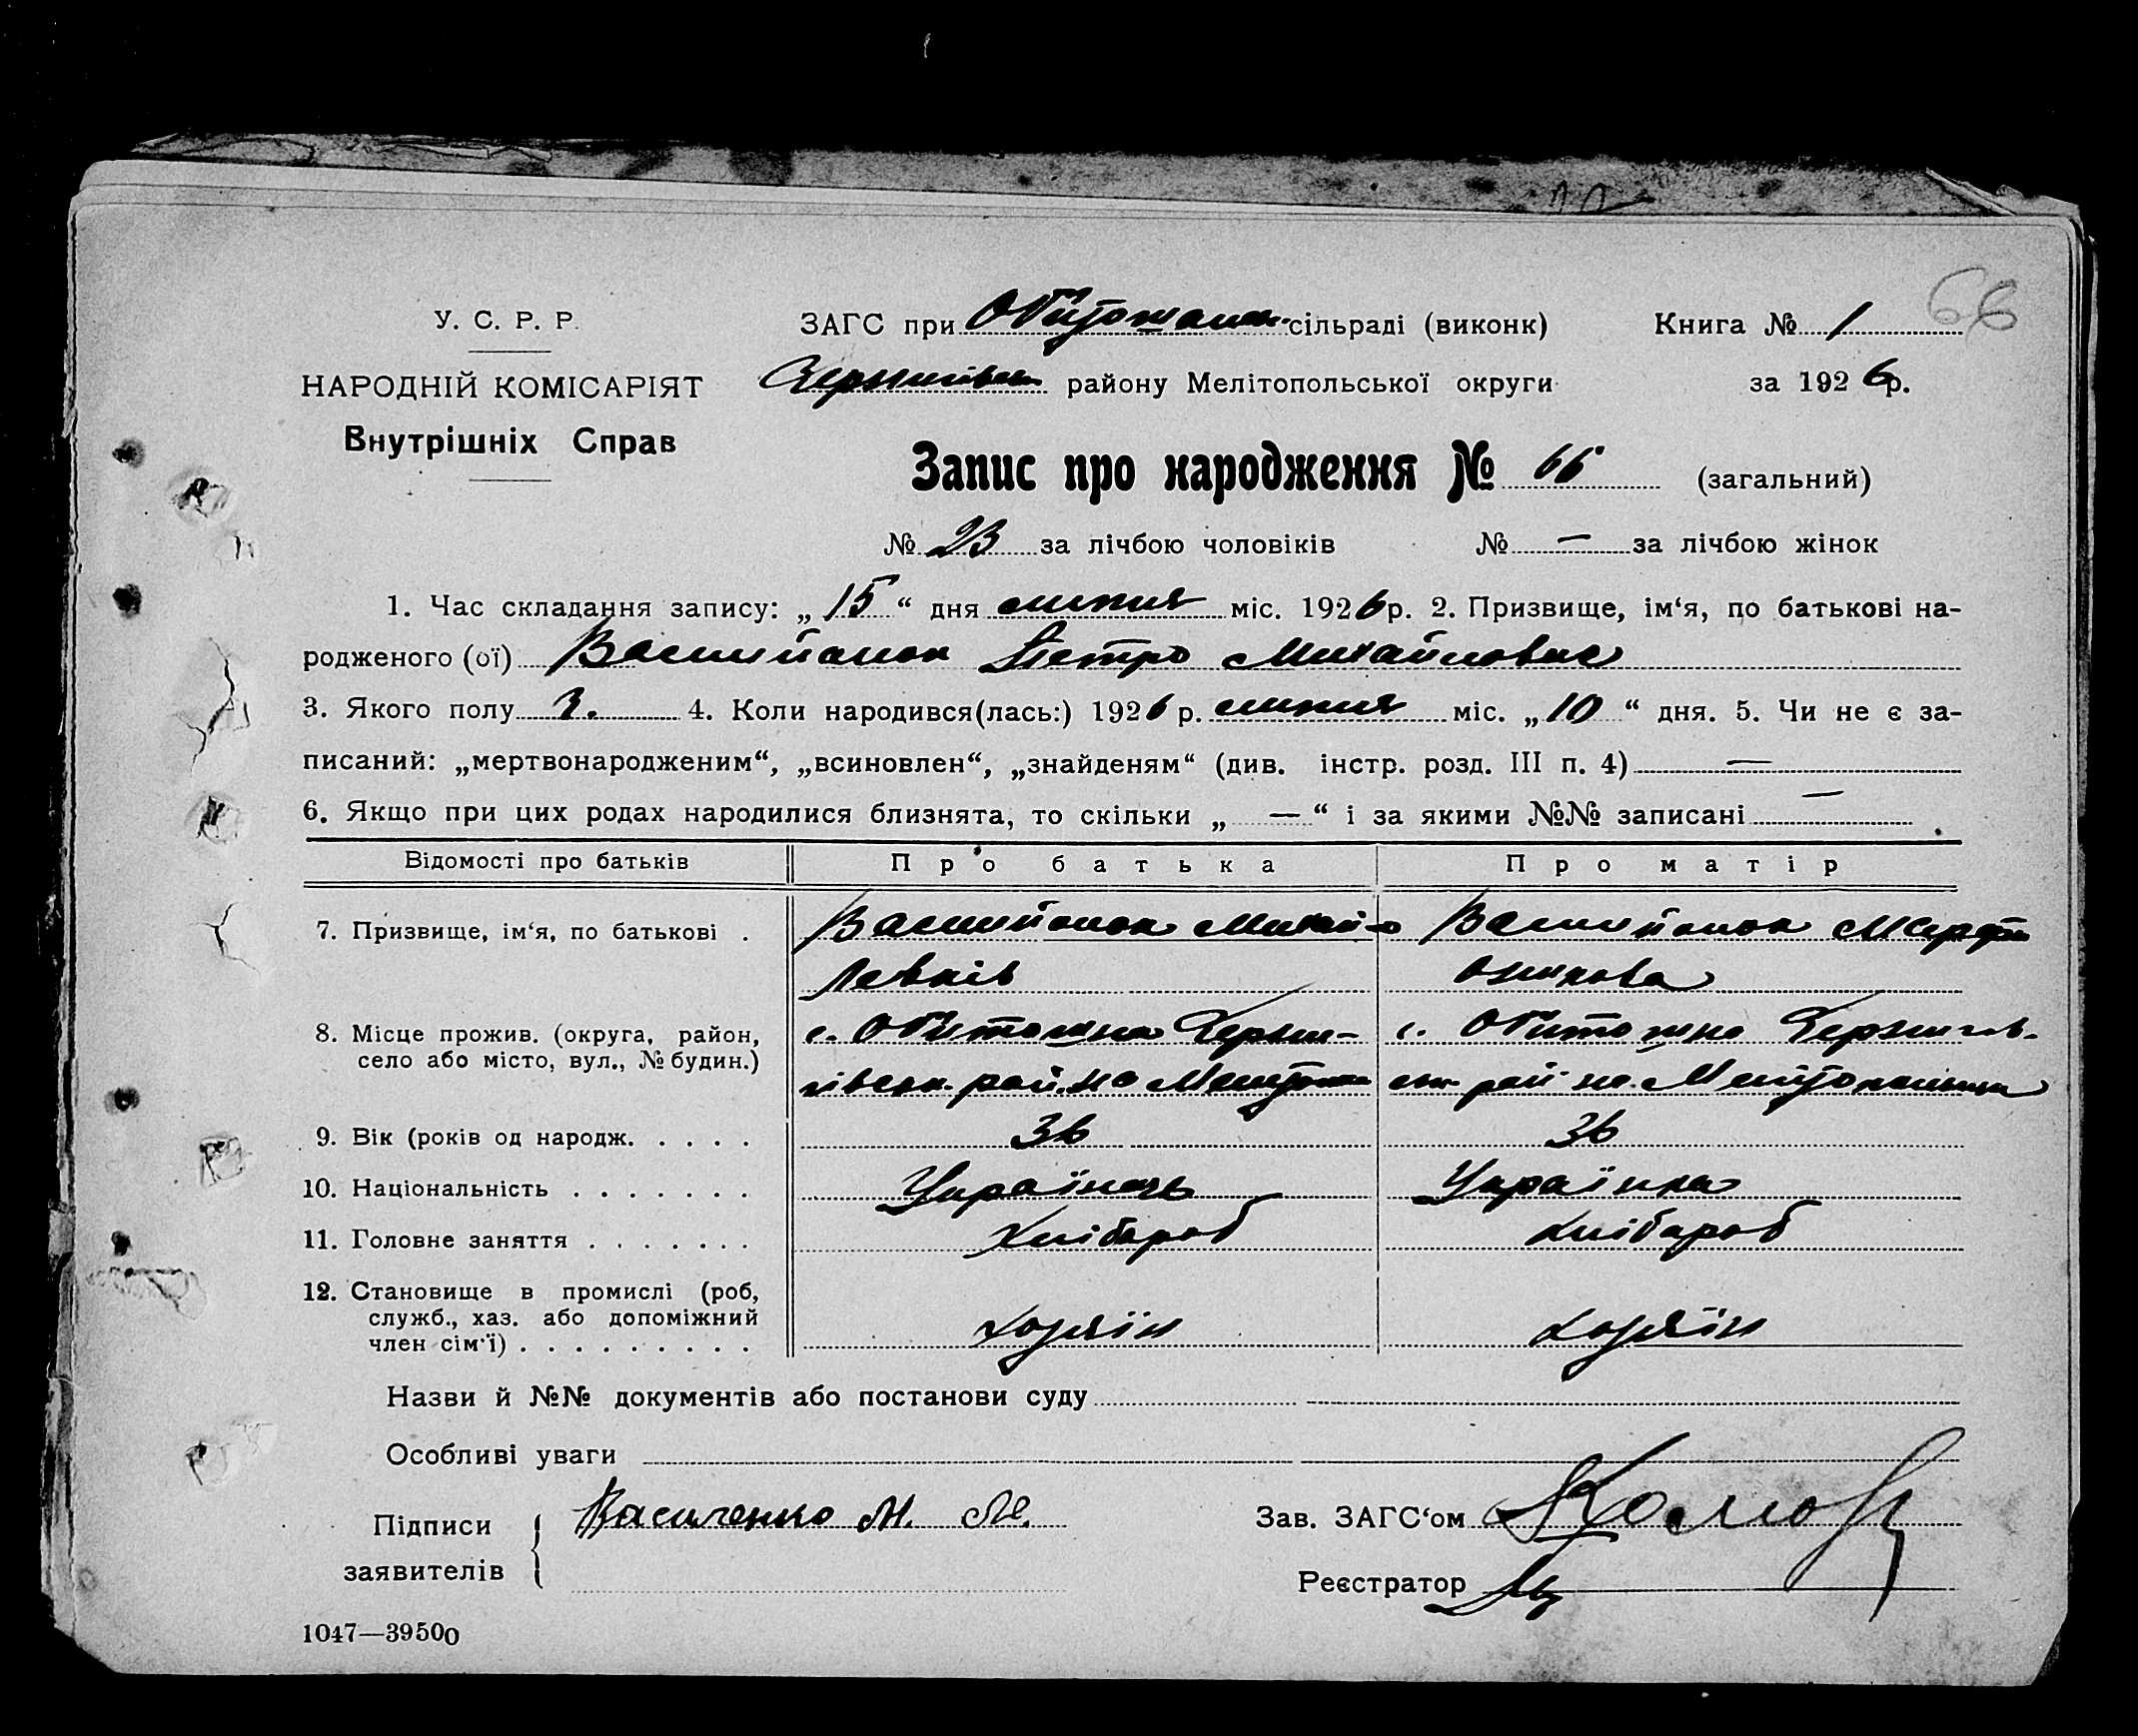 66
У. С. Р. Р.
НАРОДНІЙ КОМІСАРІЯТ
Внутрішніх Справ
ЗАГС при сільраді (виконк) Книга № 1
району Мелітопольської округи за 1926 р.
Запис про народження № 66 (загальний)
№ 23 за лічбою чоловіків № — за лічбою жінок
1. Час складання запису: „ 15 “ дня липня міс. 1926 р. 2. Призвище, ім‘я, по батькові на-
родженого (ої) Петро Михайлович
3. Якого полу ч. 4. Коли народився(лась:) 1926 р. липня міс. „ 10 “ дня. 5. Чи не є за-
писаний: „мертвонародженим“, „всиновлен“, „знайденям“ (див. інстр. розд. III п. 4) —
6. Якщо при цих родах народилися близнята, то скільки „ — “ і за якими №№ записані —
Відомості про батьків Про батька Про матір
7. Призвище, ім‘я, по батькові .
Левків
8. Місце прожив. (округа, район, с. с.
село або місто, вул., № будин.)
9. Вік (років од народж. . . . . 36 36
10. Національність . . . . . . . Українець Українка
11. Головне заняття . . . . . . . Хлібароб хлібароб
12. Становище в промислі (роб,
служб., хаз. або допоміжний
член сім‘ї) . . . . . . . . . хазяїн хазяїн
Назви й №№ документів або постанови суду
Особливі уваги
Підписи Василенко М. Зав. ЗАГС‘ом
заявителів Реєстратор
1047—39500